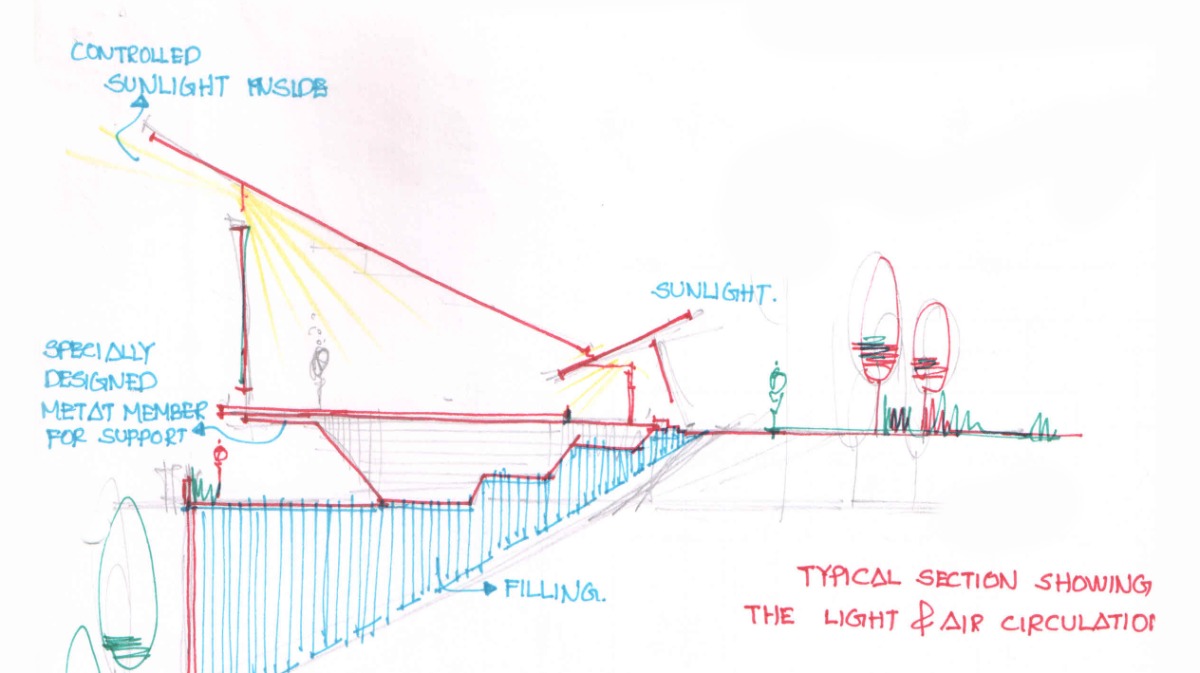 CONTROLLED
SUNLIGHT INSIDE
SUNLIGHT.
SPECIALLY
DESIGNED
METAT MEMBER
FOR SUPPORT
FILLING.
TYPICAL SECTION SHOWING
THE LIGHT & AIR CIRCULATION